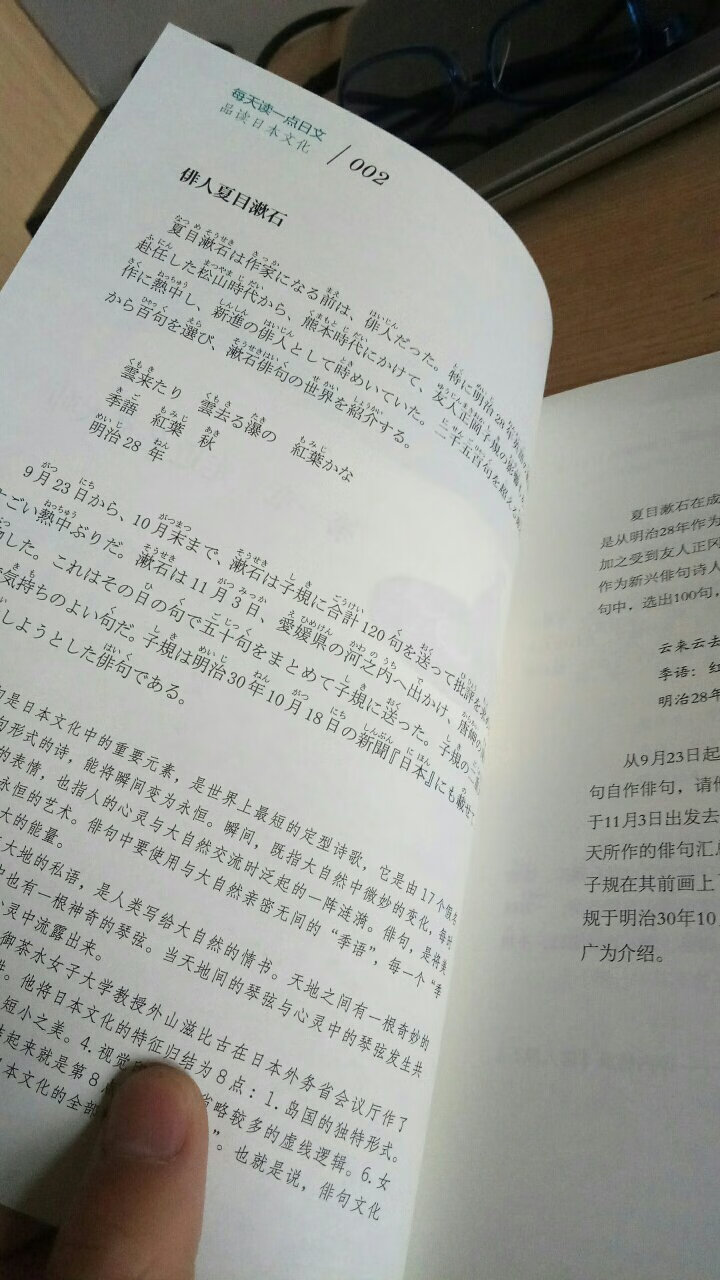 每天读一点日文
品读日本文化
002
俳人夏目漱石
夏目漱石は作家になる前は、俳人だった。特に明治28年
赴任した松山時代から、熊本時代にかけて、友人正岡子規の影響
作に熱中し、新進の俳人として時めいていた。二千五百句を超える
から百句を選び、漱石俳句の世界を紹介する。
雲来たり 雲去る瀑の 紅葉かな
季語 紅葉 秋
明治28年
9月23日から、10月末まで、漱石は子規に合計120句を送って批評を
すごい熱中ぶりだ。漱石は11月3日、愛媛県の河之内へ出かけ、唐岬の
した。これはその日の句で五十句をまとめて子規に送った。子規の
気持ちのよい句だ。子規は明治30年10月18日の新聞『日本』にも載せ
しようとした俳句である。
是日本文化中的重要元素，是世界上最短的定型诗歌，它是由17个
句形式的诗，能将瞬间变为永恒。瞬间，既指大自然中微妙的变化，每时
的表情，也指人的心灵与大自然交流时泛起的一阵涟漪。俳句，是将美
永恒的艺术。俳句中要使用与大自然亲密无间的“季语”，每一个“季
大的能量。
大地的私语，是人类写给大自然的情书。天地之间有一根奇妙的
中也有一根神奇的琴弦。当天地间的琴弦与心灵中的琴弦发生共
心灵中流露出来。
御茶水女子大学教授外山滋比古在日本外务省会议厅作了
他将日本文化的特征归结为8点：1.岛国的独特形式。
短小之美。4.视觉
省略较多的虚线逻辑。6.女
起来就是第8
本文化的全部
”。也就是说，俳句文化
夏目漱石在成
是从明治28年作为
加之受到友人正冈
作为新兴俳句诗人
句中，选出100句，
云来云去
季语：红
明治28年
从9月23日起
句自作俳句，请他
于11月3日出发去
天所作的俳句汇总
子规在其前画上
规于明治30年10
广为介绍。